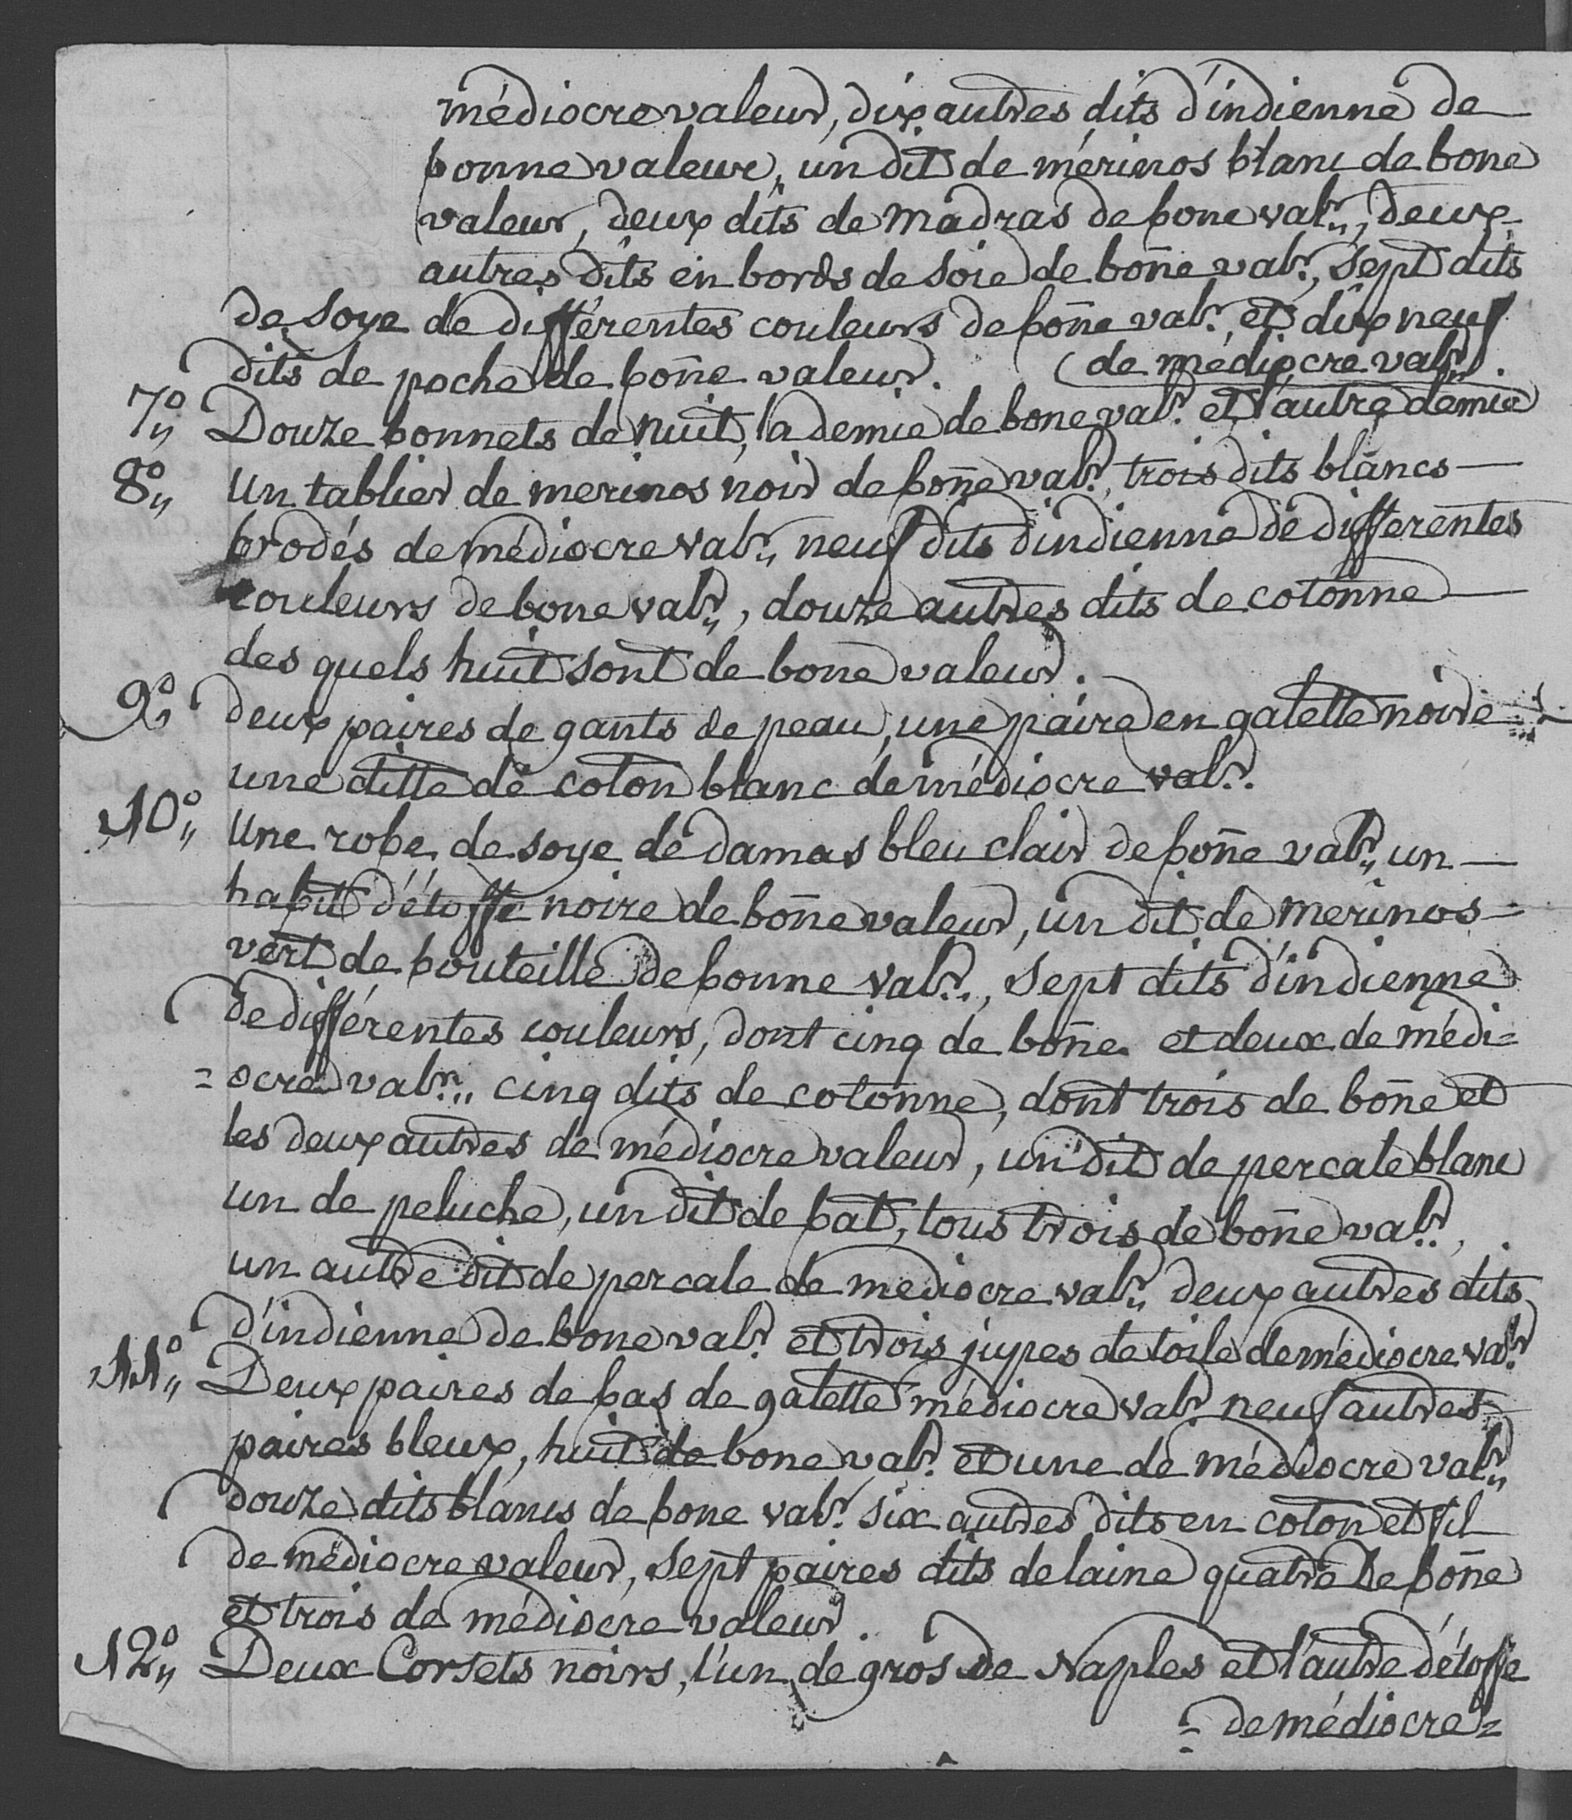 médiocre valeur, dix autres dits d'indienne de
bonne valeur, un dit de mérinos blanc de bone
valeur, deux dits de Madras de bone valr,, deux
autres dits en bords de soie de bon̄e valr, sept dits
de soye de différentes couleurs de bon̄e valr, et dix neuf
dits de poche de bon̄e valeur. (de médiocre valr.
7°,, Douze bonnets de nuit, la demie de bone valr. et l'autre demie
8°,, Un tablier de merinos noir de bon̄e valr, trois dits blancs
brodés de médiocre valr,, neuf dits d'indienne de differentes
couleurs de bone valr,, douze autres dits de cotonne
des quels huit sont de bone valeur.
9°, deux paires de gants de peau, une paire en galette noire
une ditte de coton blanc de médiocre valr.
10°,, Une robe de soye de damas bleu clair de bon̄e valr,, un
habit d'étoffe noire de bon̄e valeur, un dit de merinos
vert de bouteille de bonne valr., sept dits d'indienne
de différentes couleurs, dont cinq de bon̄e et deux de médi=
=ocre valr,, cinq dits de cotonne, dont trois de bon̄e et
les deux autres de médiocre valeur, un dit de percale blanc
un de peluche, un dit de bat, tous trois de bon̄e valr,
un autre dit de percale de mediocre valr,, deux autres dits
d'indienne de bone valr. et trois jupes de toile de médiocre valr
11°,, Deux paires de bas de galette médiocre valr. neuf autres
paires bleux, huit de bone valr. et une de médiocre valr,,
douze dits blancs de bone valr. six autres dits en coton et fil
de médiocre valeur, sept paires dits de laine quatre de bon̄e
et trois de médiocre valeur.
12°,, Deux Corsets noirs, l'un de gros de Naples et l'autre d'étoffe
= de médiocre =